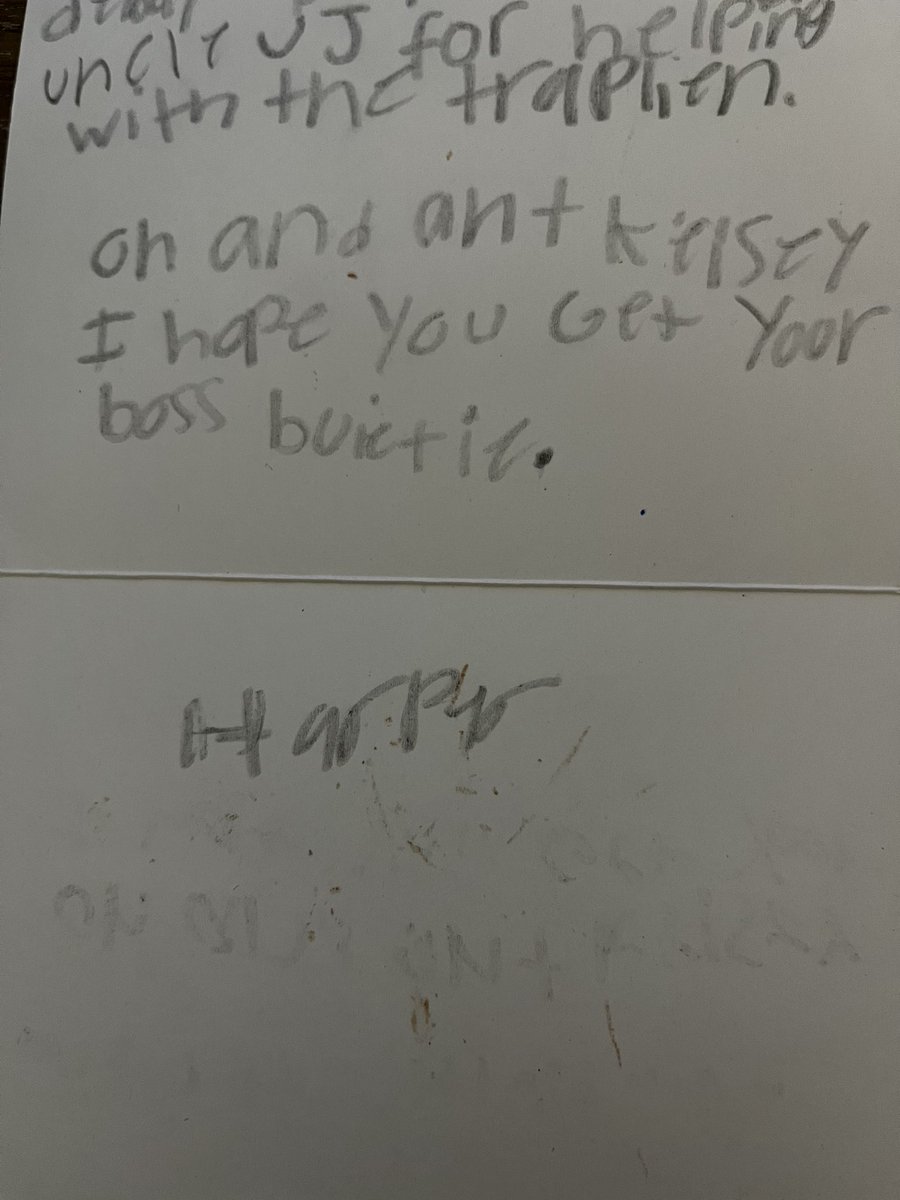 uncle JJ for helping
with the traplien.
oh and ant Kelsey
I hope you Get Your
boss buictie.
Harpr